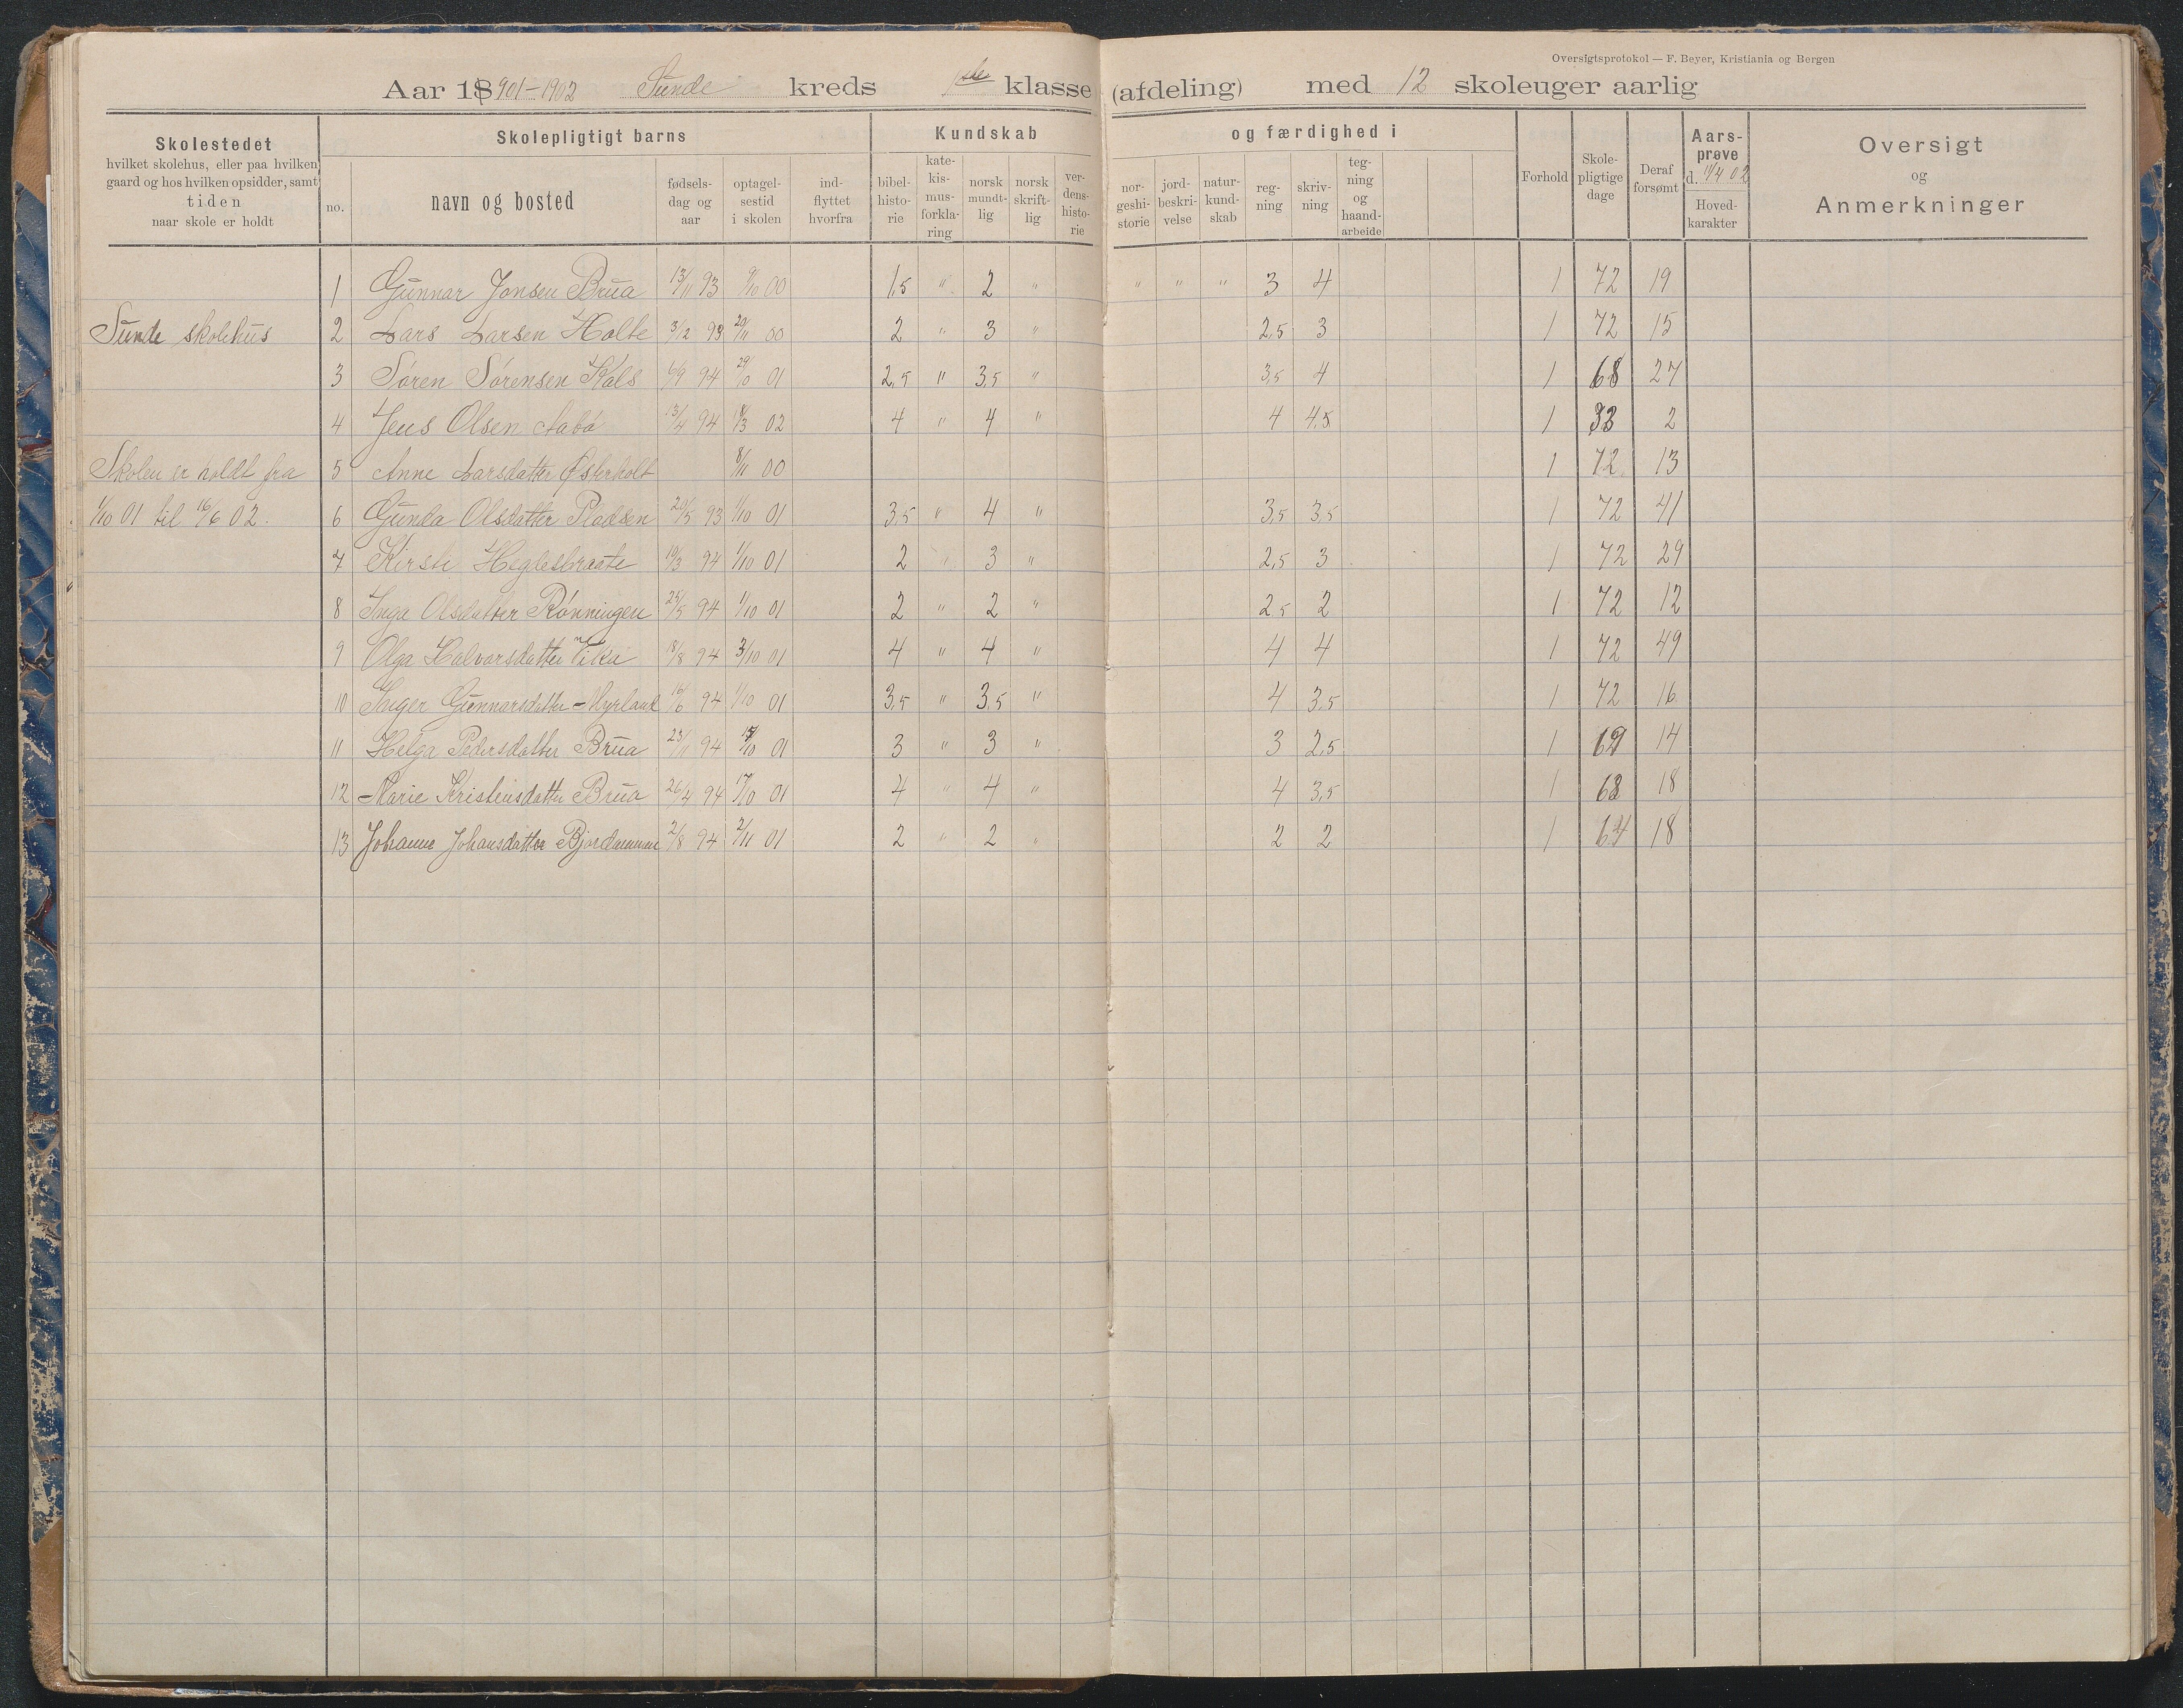 Oversigtsprotokol — F. Beyer, Kristiania og Bergen
Aar 18901-1902 Sunde kreds 1ste klasse (afdeling) med 12 skoleuger aarlig
Skolestedet
hvilket skolehus, eller paa hvilken
gaard og hos hvilken opsidder, samt
tiden
naar skole er holdt
Skolepligtigt barns
no.
navn og bosted
fødsels-
dag og
aar
optagel-
sestid
i skolen
ind-
flyttet
hvorfra
Kundskab
bibel-
histo-
rie
kate-
kis-
mus-
forkla-
ring
norsk
mundt-
lig
norsk
skrift-
lig
ver-
dens-
histo-
rie
og færdighed i
nor-
geshi-
storie
jord-
beskri-
velse
natur-
kund-
skab
reg-
ning
skriv-
ning
teg-
ning
og
haand-
arbeide
Forhold
Skole-
pligtige
dage
Deraf
forsømt
Aars-
prøve
d. 11/4 02
Hoved-
karakter
Oversigt
og
Anmerkninger
1 Gunnar Jonsen Brua 13/11 93 9/10 00 1,5 " 2 " " " " 3 4 1 72 19
Sunde skolehus 2 Lars Larsen Holte 3/12 93 20/11 00 2 " 3 " 2,5 3 1 72 15
3 Søren Sørensen Kals 6/9 94 29/10 01 2,5 " 3,5 " 3,5 4 1 68 27
4 Jens Olsen Aabø 13/4 94 18/3 02 4 " 4 " 4 4,5 1 33 2
Skolen er holdt fra 5 Anne Larsdatter Østerholt 8/11 00 1 72 13
1/10 01 til 16/6 02. 6 Gunda Olsdatter Pladsen 20/5 93 1/10 01 3,5 " 4 " 3,5 3,5 1 72 41
7 Kirste Heglesbraate 19/3 94 1/10 01 2 " 3 " 2,5 3 1 72 29
8 Inga Olsdatter Rønningen 25/5 94 1/10 01 2 " 2 " 2,5 2 1 72 12
9 Olga Halvorsdatter Vika 18/8 94 3/10 01 4 " 4 " 4 4 1 72 49
10 Inger Gunnarsdatter Myrland 16/6 94 1/10 01 3,5 " 3,5 " 4 3,5 1 72 16
11 Helga Pedersdatter Brua 23/11 94 15/10 01 3 " 3 " 3 2,5 1 69 14
12 Marie Kristensdatter Brua 26/4 94 17/10 01 4 " 4 " 4 3,5 1 68 18
13 Johanne Johansdatter 2/8 94 2/11 01 2 " 2 " 2 2 1 64 18